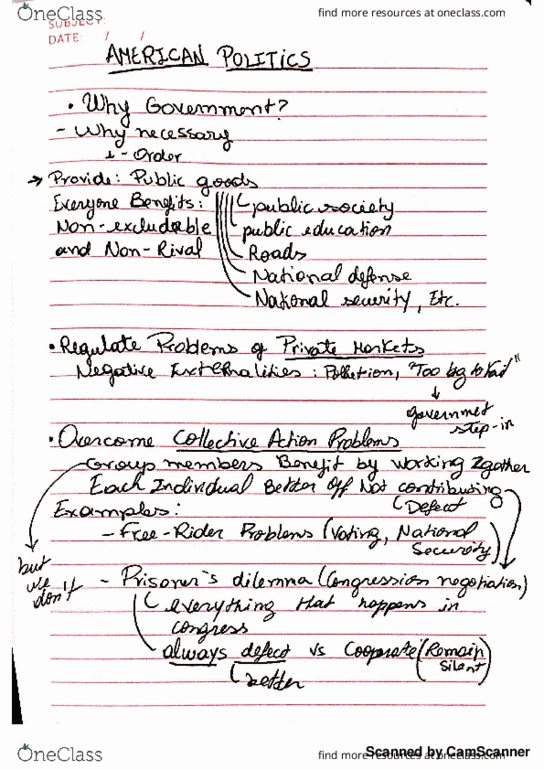 OneClass find more resources at oneclass.com
SUBJECT:
DATE: / /
AMERICAN POLITICS
• Why Government?
- Why necessary
- Order
→ Provide: Public goods
Everyone Benefits: public society
Non-excludable public education
and Non-Rival Roads
National defense
National security, Etc.
• Regulate Problems of Private Markets
Negative Externalities: Pollution, "Too big to fail"
↓
governmet
step-in
• Overcome Collective Action Problems
Group members Benefit by working 2gether
Each Individual Better off Not contributing
Defect
Examples:
- Free-Rider Problems (Voting, National
Security)
but
we
don't
- Prisoner's dilemma (Congression negotiation)
everything that happens in
congress
always defect vs Cooperate (Remain
Silent)
better
OneClass find more resources at oneclass.com
Scanned by CamScanner